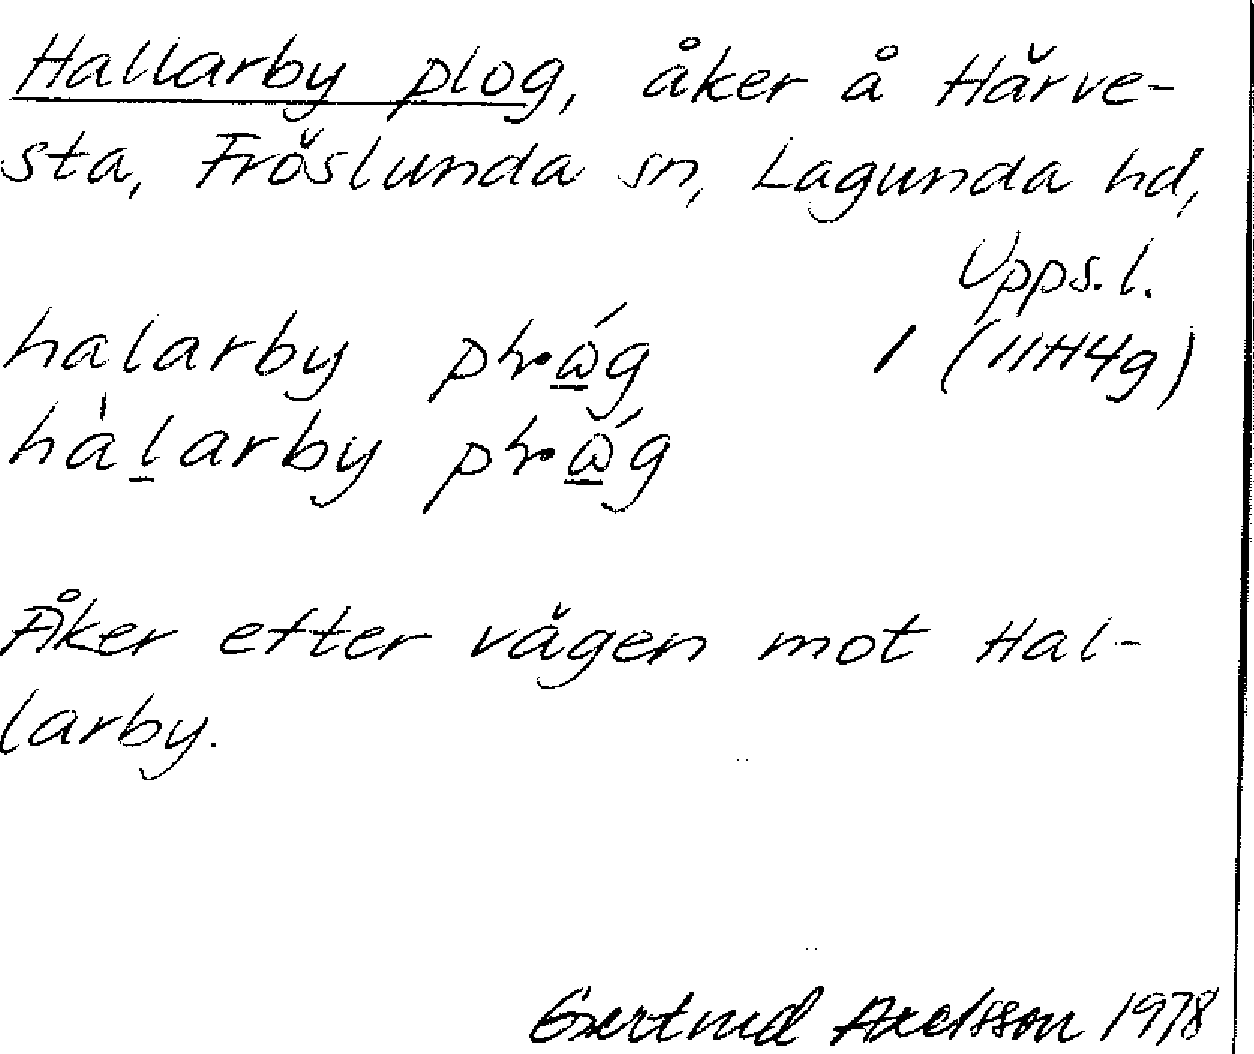 Hallarby plog, åker å Härve-
sta, Fröslunda sn, Lagunda hd,
Upps. l.
halarby
1 (11H4g)
hàlarby
Åker efter vägen mot Hal-
larby.
Gertrud Axelsson 1978